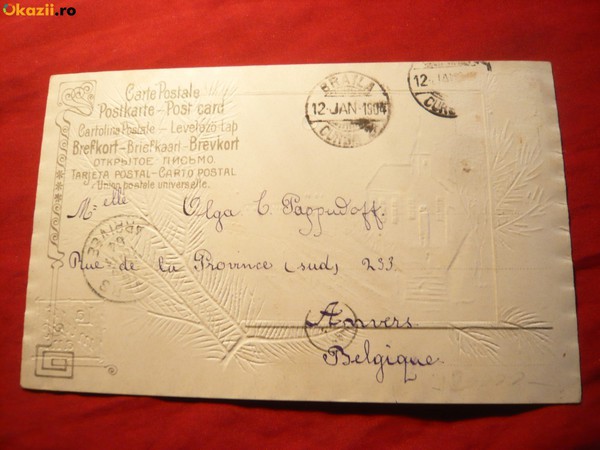 Okazii.ro
Carte Postale
Postkarte - Post card
Cartolina Postale - Levelező-Lap
Brefkort - Briefkaart - Brevkort
ОТКРЫТОЕ ПИСЬМО
TARJETA POSTAL - CARTO POSTAL
Union postale universelle.
BRAILA
12-JAN-1904
12 JAN
Melle Olga C. Pappudoff.
Rue de la Province (sud), 233
Anvers
Belgique.